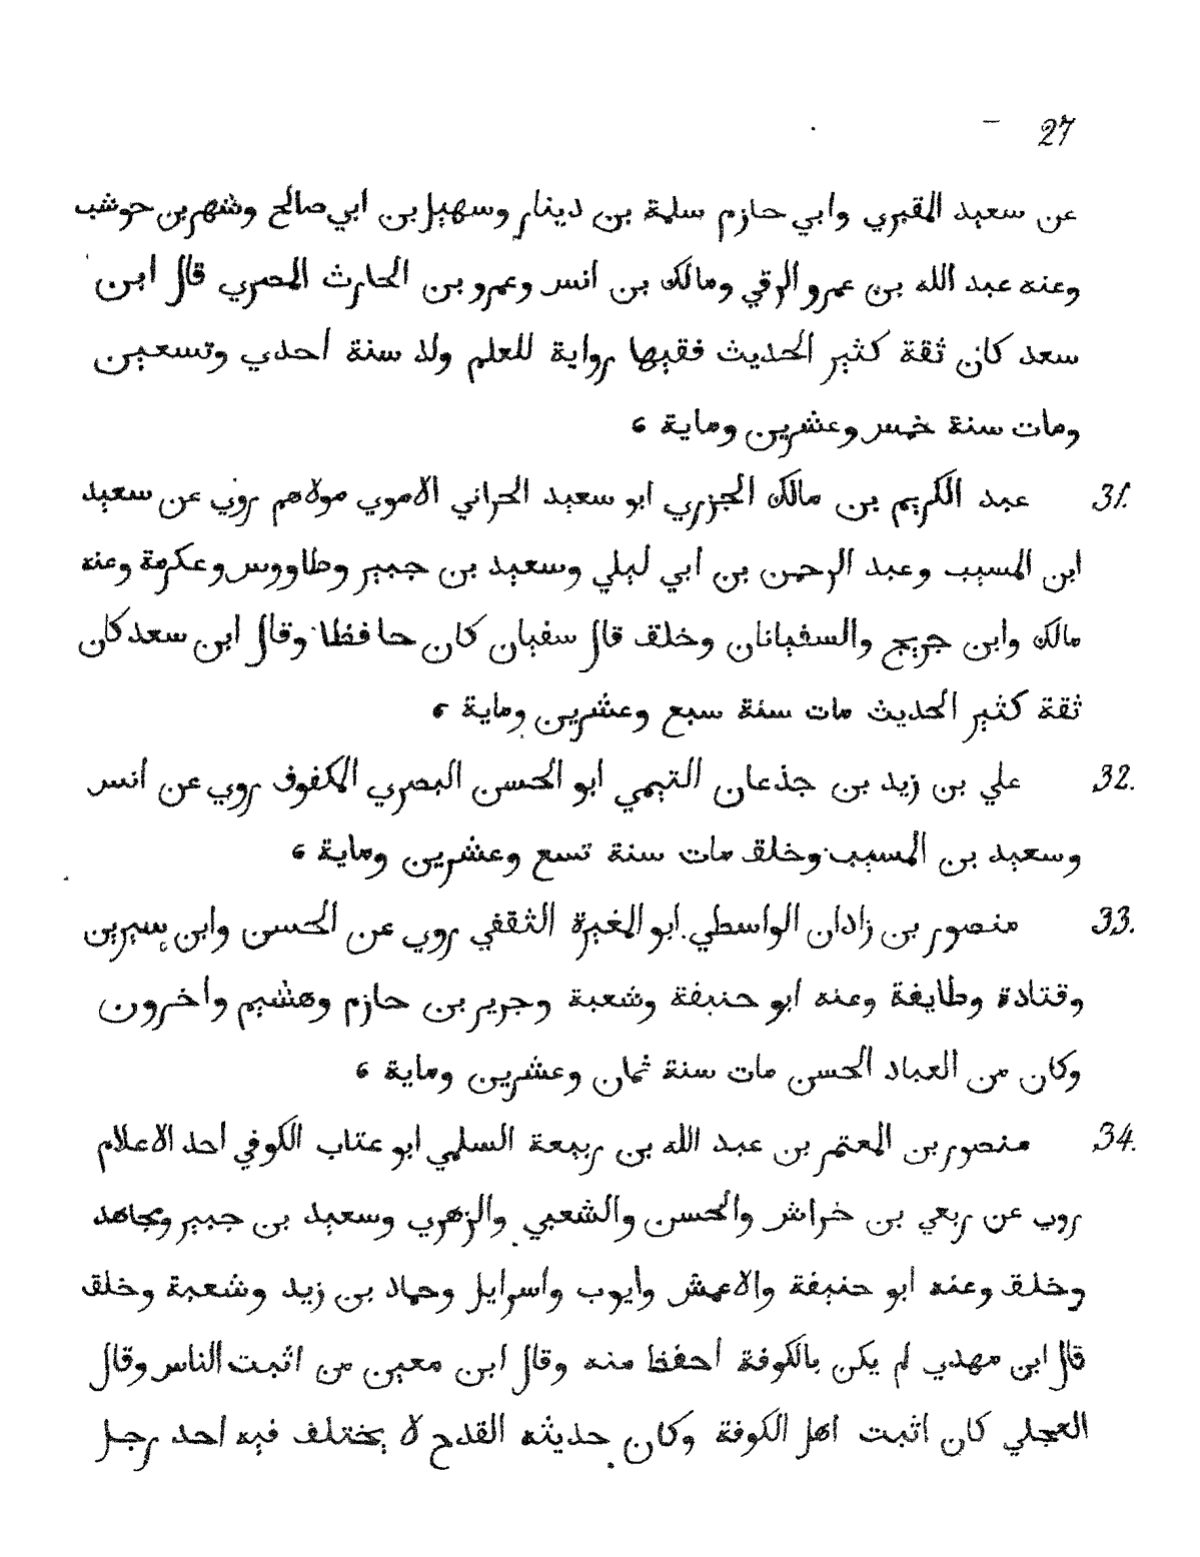 27 –
عن سعيد المقبري وابي حازم سلمة بن دينار وسهيل بن ابي صالح وشهر بن حوشب
وعنه عبد الله بن عمرو الرقي ومالك بن انس وعمرو بن الحارث المصري قال ابن
سعد كان ثقة كثير الحديث فقيها رواية للعلم ولد سنة احدي وتسعين
ومات سنة خمس وعشرين وماية ٥
31. عبد الكريم بن مالك الجزري ابو سعيد الحراني الاموي مولاهم روي عن سعيد
ابن المسيب وعبد الرحمن بن ابي ليلي وسعيد بن جبير وطاووس وعكرمة وعنه
مالك وابن جريج والسفيانان وخلق قال سفيان كان حافظا وقال ابن سعد كان
ثقة كثير الحديث مات سنة سبع وعشرين وماية ٥
32. علي بن زيد بن جذعان التيمي ابو الحسن البصري المكفوف روي عن انس
وسعيد بن المسيب وخلق مات سنة تسع وعشرين وماية ٥
33. منصور بن زادان الواسطي ابو المغيرة الثقفي روي عن الحسن وابن سيرين
وقتادة وطايفة وعنه ابو حنيفة وشعبة وجرير بن حازم وهشيم واخرون
وكان من العباد الحسن مات سنة ثمان وعشرين وماية ٥
34. منصور بن المعتمر بن عبد الله بن ربيعة السلمي ابو عتاب الكوفي احد الاعلام
روي عن ربعي بن خراش والحسن والشعبي والزهري وسعيد بن جبير ومجاهد
وخلق وعنه ابو حنيفة والاعمش وايوب واسرايل وحماد بن زيد وشعبة وخلق
قال ابن مهدي لم يكن بالكوفة احفظ منه وقال ابن معين من اثبت الناس وقال
العجلي كان اثبت اهل الكوفة وكان حديثه القدح لا يختلف فيه احد رجل